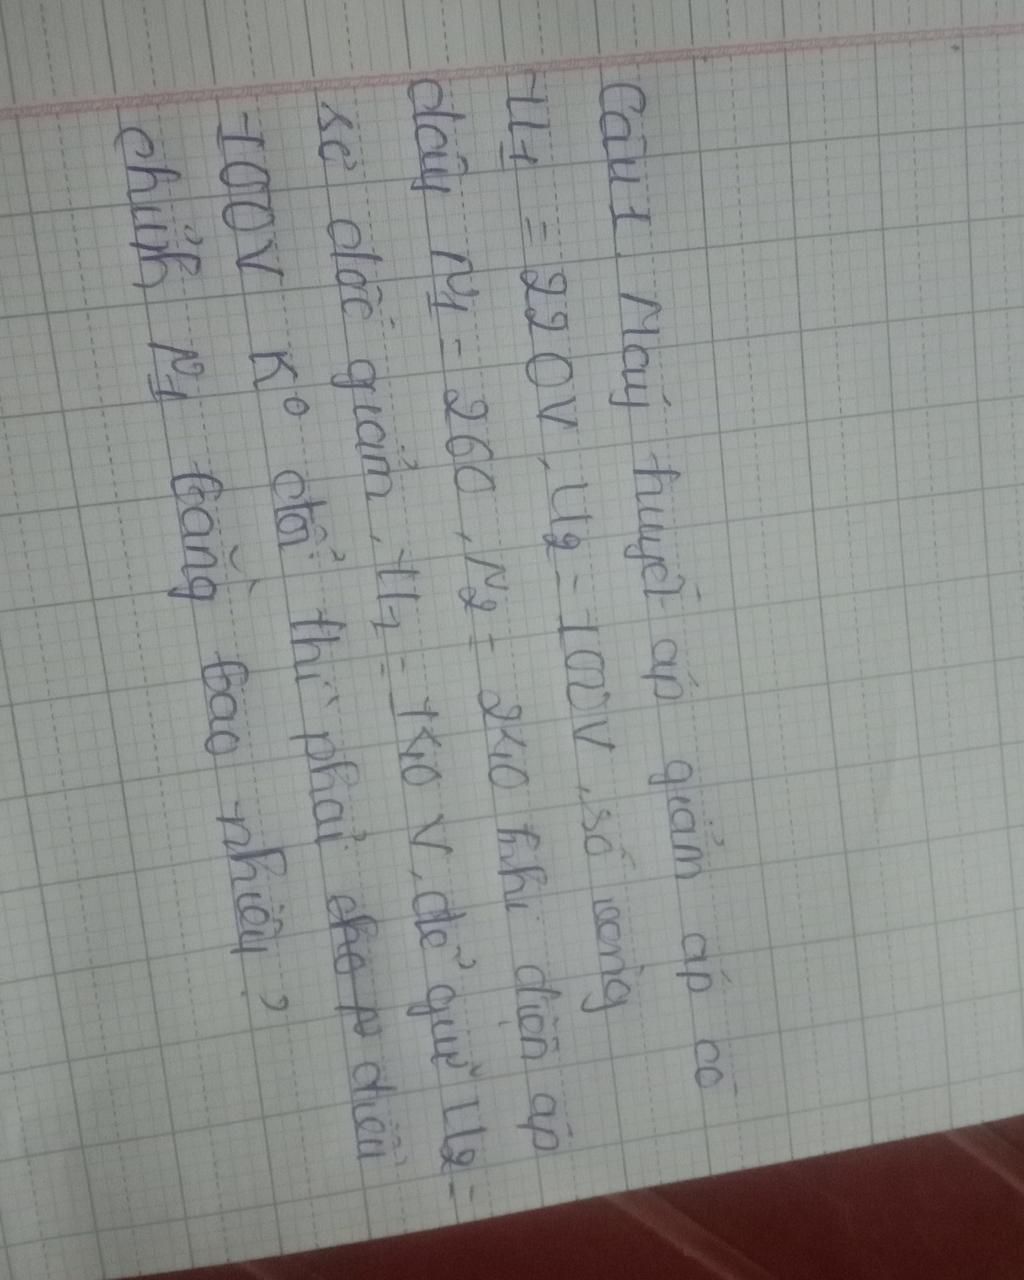 Câu 1. Máy huyết áp giảm áp có
U1 = 220V, U2 = 100V, số vòng
dây N1 = 260, N2 = 240 khi điện áp
sơ cấp giảm, U1 = 140 V, để giữ U2 =
100V K° đổi thì phải cho p điều
chỉnh N1 bằng bao nhiêu?